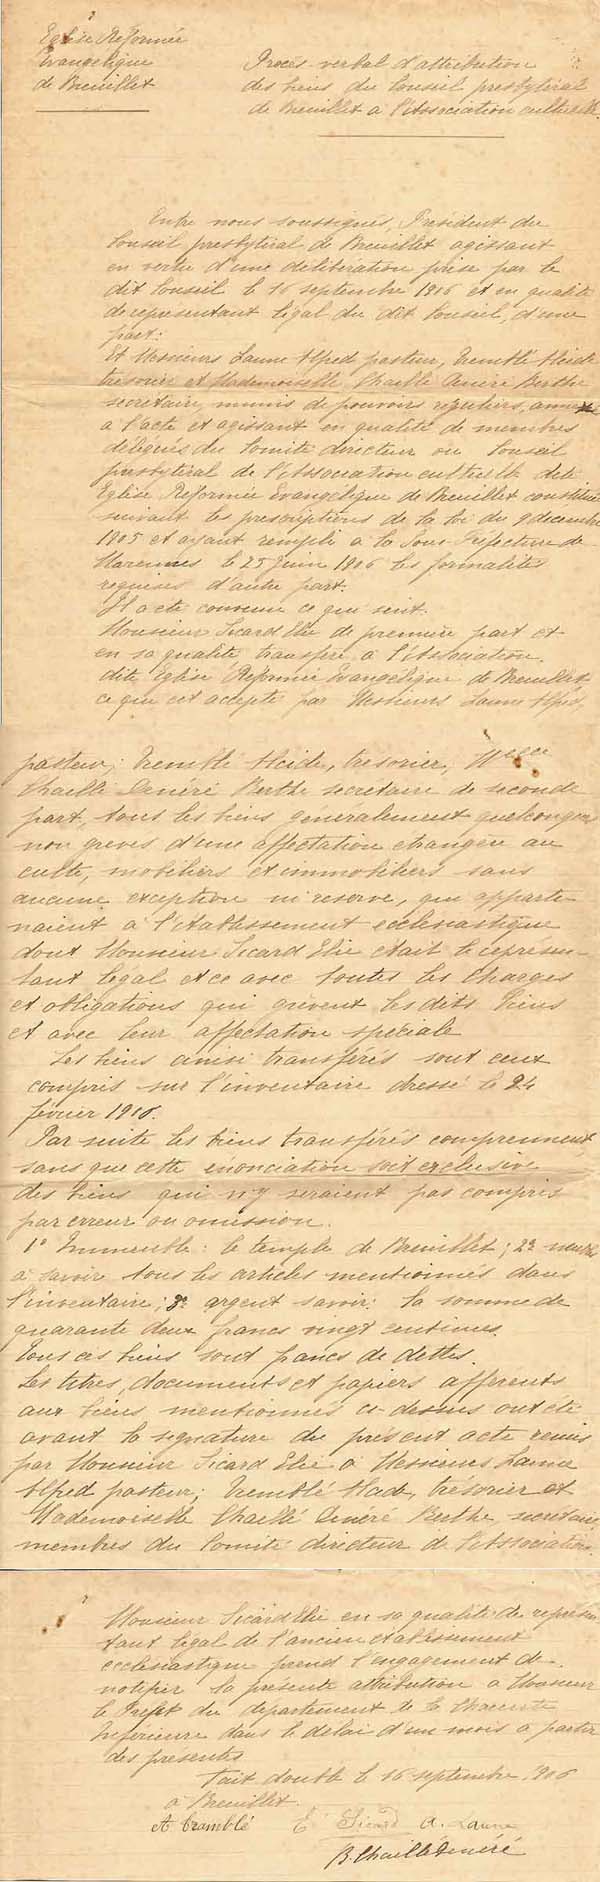 Eglise Réformée
Evangelique
de Breuillet
Procès-verbal d'attribution
des biens du Conseil presbytéral
de Breuillet à l'Association cultuelle
Entre nous soussignés, Président du
Conseil presbytéral de Breuillet agissant
en vertu d'une délibération prise par le
dit Conseil le 16 septembre 1906 et en qualité
de représentant légal du dit Conseil, d'une
part:
Et Messieurs Laune Alfred pasteur, Tremblé Alcide
trésorier et Mademoiselle Chaillé Denéré Berthe
secrétaire, munis de pouvoirs réguliers, annexés
à l'acte et agissant en qualité de membres
délégués du Comité directeur ou Conseil
presbytéral de l'Association cultuelle dite
Eglise Réformée Evangélique de Breuillet constituée
suivant les prescriptions de la loi du 9 décembre
1905 et ayant rempli à la Sous-Préfecture de
Marennes le 25 Juin 1906 les formalités
requises d'autre part.
Il a été convenu ce qui suit.
Monsieur Sicard Elie de première part et
en sa qualité transfère à l'Association
dite Eglise Réformée Evangélique de Breuillet
ce qui est accepté par Messieurs Laune Alfred,
pasteur; Tremblé Alcide, trésorier, Melle
Chaillé Denéré Berthe secrétaire de seconde
part, tous les biens généralement quelconques
non grevés d'une affectation étrangère au
culte, mobiliers et immobiliers sans
aucune exception ni réserve, qui apparte-
naient à l'établissement ecclésiastique
dont Monsieur Sicard Elie était le représen-
tant légal et ce avec toutes les charges
et obligations qui grèvent les dits biens
et avec leur affectation spéciale
Les biens ainsi transférés sont ceux
compris sur l'inventaire dressé le 24
février 1906.
Par suite les biens transférés comprennent,
sans que cette énonciation soit exclusive
des biens qui n'y seraient pas compris
par erreur ou omission.
1° Immeuble: le temple de Breuillet; 2° meubles
à savoir tous les articles mentionnés dans
l'inventaire; 3° argent savoir: la somme de
quarante deux francs vingt centimes.
Tous ces biens sont francs de dettes.
Les titres, documents et papiers afférents
aux biens mentionnés ci-dessus ont été
avant la signature du présent acte remis
par Monsieur Sicard Elie à Messieurs Laune
Alfred pasteur; Tremblé Alcide, trésorier et
Mademoiselle Chaillé Denéré Berthe secrétaire
membres du Comité directeur de l'Association.
Monsieur Sicard Elie en sa qualité de représen-
tant légal de l'ancien établissement
ecclésiastique prend l'engagement de
notifier la présente attribution à Monsieur
le Préfet du département de la Charente
Inférieure dans le délai d'un mois à partir
des présentes
Fait double le 16 septembre 1906
à Breuillet.
A Tramblé E Sicard A. Laune
B. Chaillé Denéré